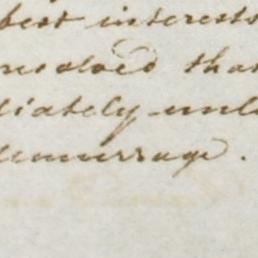 best interests
resolved that
diately unl
demurrage.